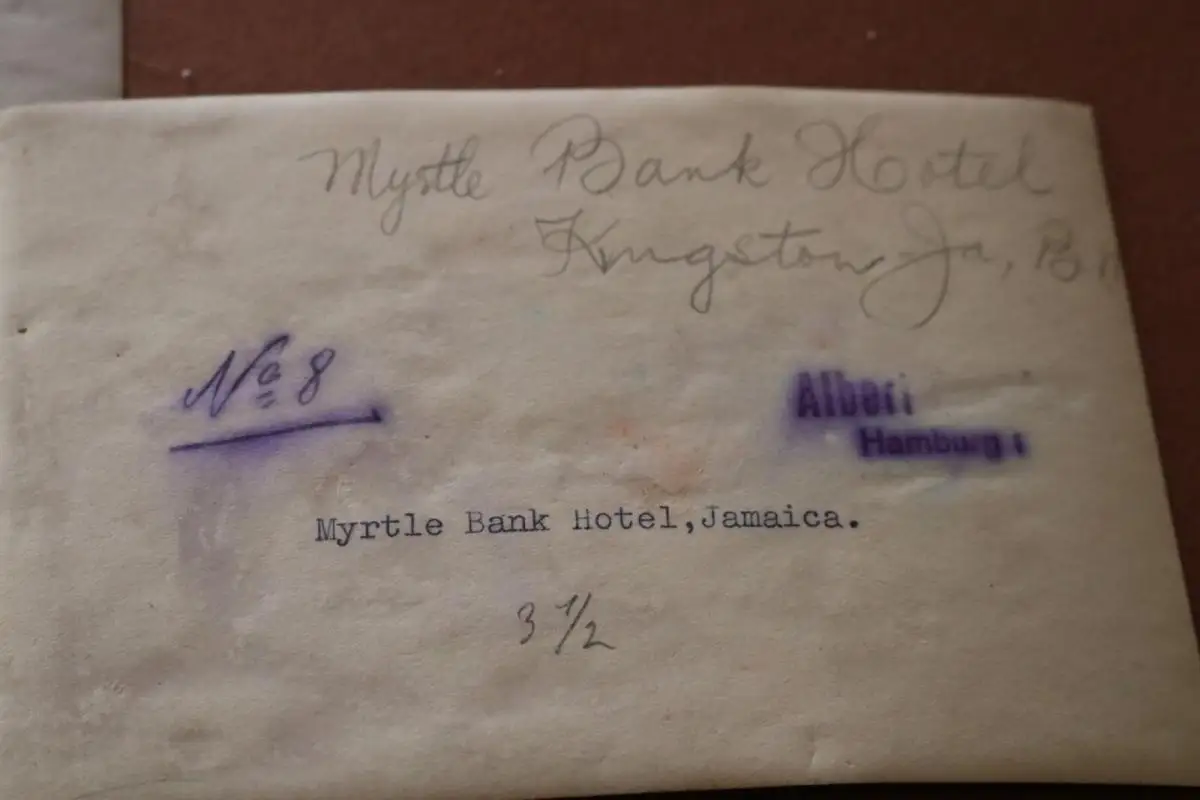 Myrtle Bank Hotel
Kingston Ja, B
No 8
Hamburg 1
Myrtle Bank Hotel,Jamaica.
3 1/2